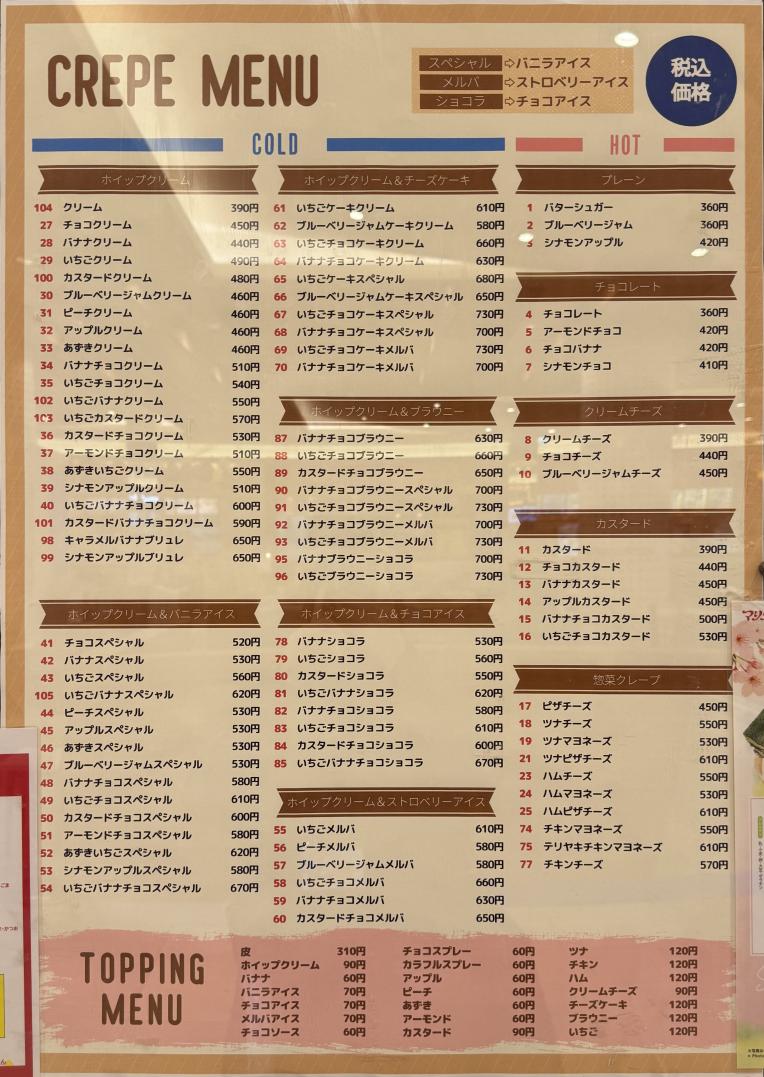 CREPE MENU
スペシャル ⇨バニラアイス
メルバ ⇨ストロベリーアイス
ショコラ ⇨チョコアイス
税込
価格
COLD
ホイップクリーム
104 クリーム 390円
27 チョコクリーム 450円
28 バナナクリーム 440円
29 いちごクリーム 490円
100 カスタードクリーム 480円
30 ブルーベリージャムクリーム 460円
31 ピーチクリーム 460円
32 アップルクリーム 460円
33 あずきクリーム 460円
34 バナナチョコクリーム 510円
35 いちごチョコクリーム 540円
102 いちごバナナクリーム 550円
103 いちごカスタードクリーム 570円
36 カスタードチョコクリーム 530円
37 アーモンドチョコクリーム 510円
38 あずきいちごクリーム 550円
39 シナモンアップルクリーム 510円
40 いちごバナナチョコクリーム 600円
101 カスタードバナナチョコクリーム 590円
98 キャラメルバナナブリュレ 650円
99 シナモンアップルブリュレ 650円
ホイップクリーム&バニラアイス
41 チョコスペシャル 520円
42 バナナスペシャル 530円
43 いちごスペシャル 560円
105 いちごバナナスペシャル 620円
44 ピーチスペシャル 530円
45 アップルスペシャル 530円
46 あずきスペシャル 530円
47 ブルーベリージャムスペシャル 530円
48 バナナチョコスペシャル 580円
49 いちごチョコスペシャル 610円
50 カスタードチョコスペシャル 600円
51 アーモンドチョコスペシャル 580円
52 あずきいちごスペシャル 620円
53 シナモンアップルスペシャル 580円
54 いちごバナナチョコスペシャル 670円
ホイップクリーム&チーズケーキ
61 いちごケーキクリーム 610円
62 ブルーベリージャムケーキクリーム 580円
63 いちごチョコケーキクリーム 660円
64 バナナチョコケーキクリーム 630円
65 いちごケーキスペシャル 680円
66 ブルーベリージャムケーキスペシャル 650円
67 いちごチョコケーキスペシャル 730円
68 バナナチョコケーキスペシャル 700円
69 いちごチョコケーキメルバ 730円
70 バナナチョコケーキメルバ 700円
ホイップクリーム&ブラウニー
87 バナナチョコブラウニー 630円
88 いちごチョコブラウニー 660円
89 カスタードチョコブラウニー 650円
90 バナナチョコブラウニースペシャル 700円
91 いちごチョコブラウニースペシャル 730円
92 バナナチョコブラウニーメルバ 700円
93 いちごチョコブラウニーメルバ 730円
95 バナナブラウニーショコラ 700円
96 いちごブラウニーショコラ 730円
ホイップクリーム&チョコアイス
78 バナナショコラ 530円
79 いちごショコラ 560円
80 カスタードショコラ 550円
81 いちごバナナショコラ 620円
82 バナナチョコショコラ 580円
83 いちごチョコショコラ 610円
84 カスタードチョコショコラ 600円
85 いちごバナナチョコショコラ 670円
ホイップクリーム&ストロベリーアイス
55 いちごメルバ 610円
56 ピーチメルバ 580円
57 ブルーベリージャムメルバ 580円
58 いちごチョコメルバ 660円
59 バナナチョコメルバ 630円
60 カスタードチョコメルバ 650円
HOT
プレーン
1 バターシュガー 360円
2 ブルーベリージャム 360円
3 シナモンアップル 420円
チョコレート
4 チョコレート 360円
5 アーモンドチョコ 420円
6 チョコバナナ 420円
7 シナモンチョコ 410円
クリームチーズ
8 クリームチーズ 390円
9 チョコチーズ 440円
10 ブルーベリージャムチーズ 450円
カスタード
11 カスタード 390円
12 チョコカスタード 440円
13 バナナカスタード 450円
14 アップルカスタード 450円
15 バナナチョコカスタード 500円
16 いちごチョコカスタード 530円
惣菜クレープ
17 ピザチーズ 450円
18 ツナチーズ 550円
19 ツナマヨネーズ 530円
21 ツナピザチーズ 610円
23 ハムチーズ 550円
24 ハムマヨネーズ 530円
25 ハムピザチーズ 610円
74 チキンマヨネーズ 550円
75 テリヤキチキンマヨネーズ 610円
77 チキンチーズ 570円
TOPPING
MENU
皮 310円
ホイップクリーム 90円
バナナ 60円
バニラアイス 70円
チョコアイス 70円
メルバアイス 70円
チョコソース 60円
チョコスプレー 60円
カラフルスプレー 60円
アップル 60円
ピーチ 60円
あずき 60円
アーモンド 60円
カスタード 90円
ツナ 120円
チキン 120円
ハム 120円
クリームチーズ 90円
チーズケーキ 120円
ブラウニー 120円
いちご 120円